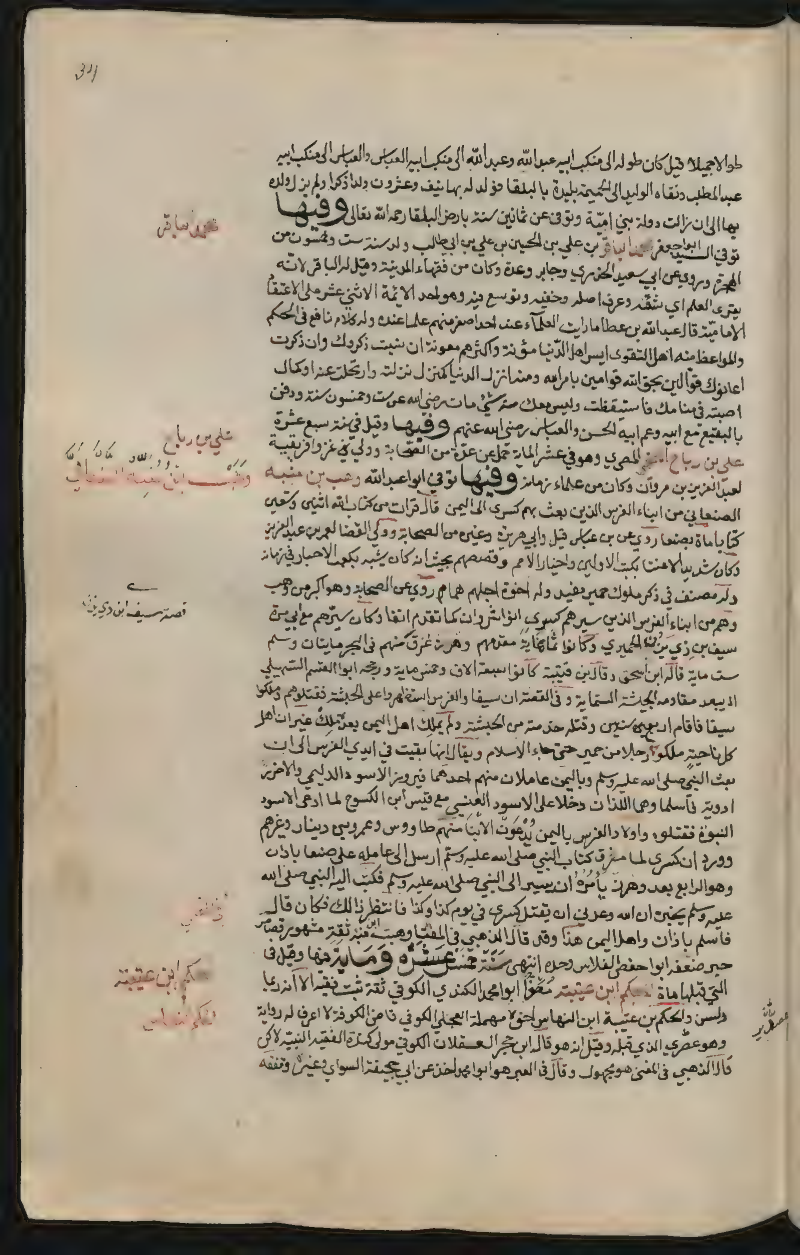 طوالا جميلا قيل كان طوله الى منكب ابيه عبد الله وعبد الله الى منكب ابيه العباس والعباس الى منكب ابيه
عبد المطلب ونفاه الوليد الى الحميمة بليدة بالبلقا فولد له بها نيف وعشرون ولدا ذكرا ولم يزل ولده
بها الى ان زالت دولة بني امية وتوفي عن ثمانين سنة بارض البلقا رحمه الله تعالى وفيها
محمد الباقر
توفي السيد ابو جعفر محمد الباقر بن علي بن الحسين بن علي بن ابي طالب ولد سنة ست وخمسون من
الهجرة وروى عن ابي سعيد الخدري وجابر وعدة وكان من فقهاء المدينة وقيل له الباقر لانه
بقر العلم اي شقه وعرف اصله وخفيه وتوسع فيه وهو احد الايمة الاثني عشر على الاعتقاد
الامامية قال عبد الله بن عطا ما رايت العلماء عند احد اصغر منهم علما عنده وله كلام نافع في الحكم
والمواعظ منه اهل التقوى ايسر اهل الدنيا مؤنة واكثرهم معونة ان نسيت ذكروك وان ذكرت
اعانوك قوالين بحق الله قوامين بامر الله ومنه انزل الدنيا كمنزل نزلته وارتحلت عنه او كمال
اصبته في منامك فاستيقظت وليس معك منه شيء مات رضي الله عن ست وخمسون سنة ودفن
بالبقيع مع ابيه وعم ابيه الحسن والعباس رضي الله عنهم وفيها وقيل في سنة سبع عشرة
علي بن رباح
علي بن رباح اللخمي المصري وهو في عشر الماية حمل عن عدة من الصحابة وولي غزو افريقية
لعبد العزيز بن مروان وكان من علماء زمانه وفيها توفي ابو عبد الله وهب بن منبه
وهب ابن منبه الصنعاني
الصنعاني من ابناء الفرس الذين بعث بهم كسرى الى اليمن قال قرات من كتاب الله اثنين وتسعين
كتابا مات بصنعا روى عن بن عباس قيل وابي هريرة وغيره من الصحابة وولي القضا لعمر بن عبد العزيز
وكان شديد الاعتنا بكتب الاولين واخبار الامم وقصصهم بحيث انه كان يشبه بكعب الاحبار في زمانه
وله مصنف في ذكر ملوك حمير مفيد وله اخوة اجلهم همام روى عن الصحابة وهو اكبر من وهب
قصة سيف ابن ذي يزن
وهم من ابناء الفرس الذين سيرهم كسرى انوا شروان كما تقدم انفا وكان سيرهم مع ابي مرة
سيف بن ذي يزن الحميري وكانوا ثمانماية مقدمهم وهرز غرق منهم في البحر مايتان وسلم
ست ماية قاله ابن اسحق وقال ابن قتيبة كانوا سبعة الاف وخمس ماية ورجحه ابو القسم السهيلي
اذ يبعد مقاومة الحبشة الستماية وفي القصة ان سيفا والفرس استظهروا على الحبشة فقتلوهم وملكوا
سيفا فاقام اربعين سنين وقتله خدمته من الحبشة ولم يملك اهل اليمن بعد ملك غير ان اهل
كل ناحية ملكوا رجلا من حمير حتى جاء الاسلام ويقال انها بقيت في ايدي الفرس الى ان
بعث النبي صلى الله عليه وسلم وباليمن عاملان منهم احدهما فيروز الاسود الديلمي والاخر
ادوية فاسلما وهما اللذان دخلا على الاسود العنسي مع قيس ابن الكسوح لما ادعى الاسود
النبوة فقتلوه واولاد الفرس باليمن يدعون الابنا منهم طاووس وعمرو بن دينار وغيرهم
وورد ان كسرى لما مزق كتاب النبي صلى الله عليه وسلم ارسل الى عامله على صنعا باذان
وهو الرابع بعد وهرز يأمره ان يسير الى النبي صلى الله عليه وسلم فكتب اليه النبي صلى الله
عليه وسلم يخبره ان الله وعدني ان يقتل كسرى في يوم كذا وكذا فانتظر ذلك فكان قال
فاسلم باذان واهل اليمن هذا وقد قال الذهبي في المغني وهب بن منبه ثقة مشهور قصاص
خير ضعفه ابو حفص الفلاس وحده انتهى سنة خمس عشره وماية فيها وقيل في
حكم ابن عتيبة
التي قبلها مات الحكم ابن عتيبة مصغرا ابو محمد الكندي الكوفي ثقة ثبت فقيه الا انه ربما
الحكم النهاس
دلس والحكم بن عتيبة ابن النهاس اخره مهملة العجلي الكوفي قاضي الكوفة لا اعرف له رواية
وهو عصري الذي قبله وقيل انه هو قاله ابن حجر العسقلاني الكوفي مولى كندة الفقيه النبيه لاكن
قال الذهبي في المغني هو مجهول وقال في العبر هو ابو محمد اخذ عن ابي جحيفة السواي وغيره وتفقه